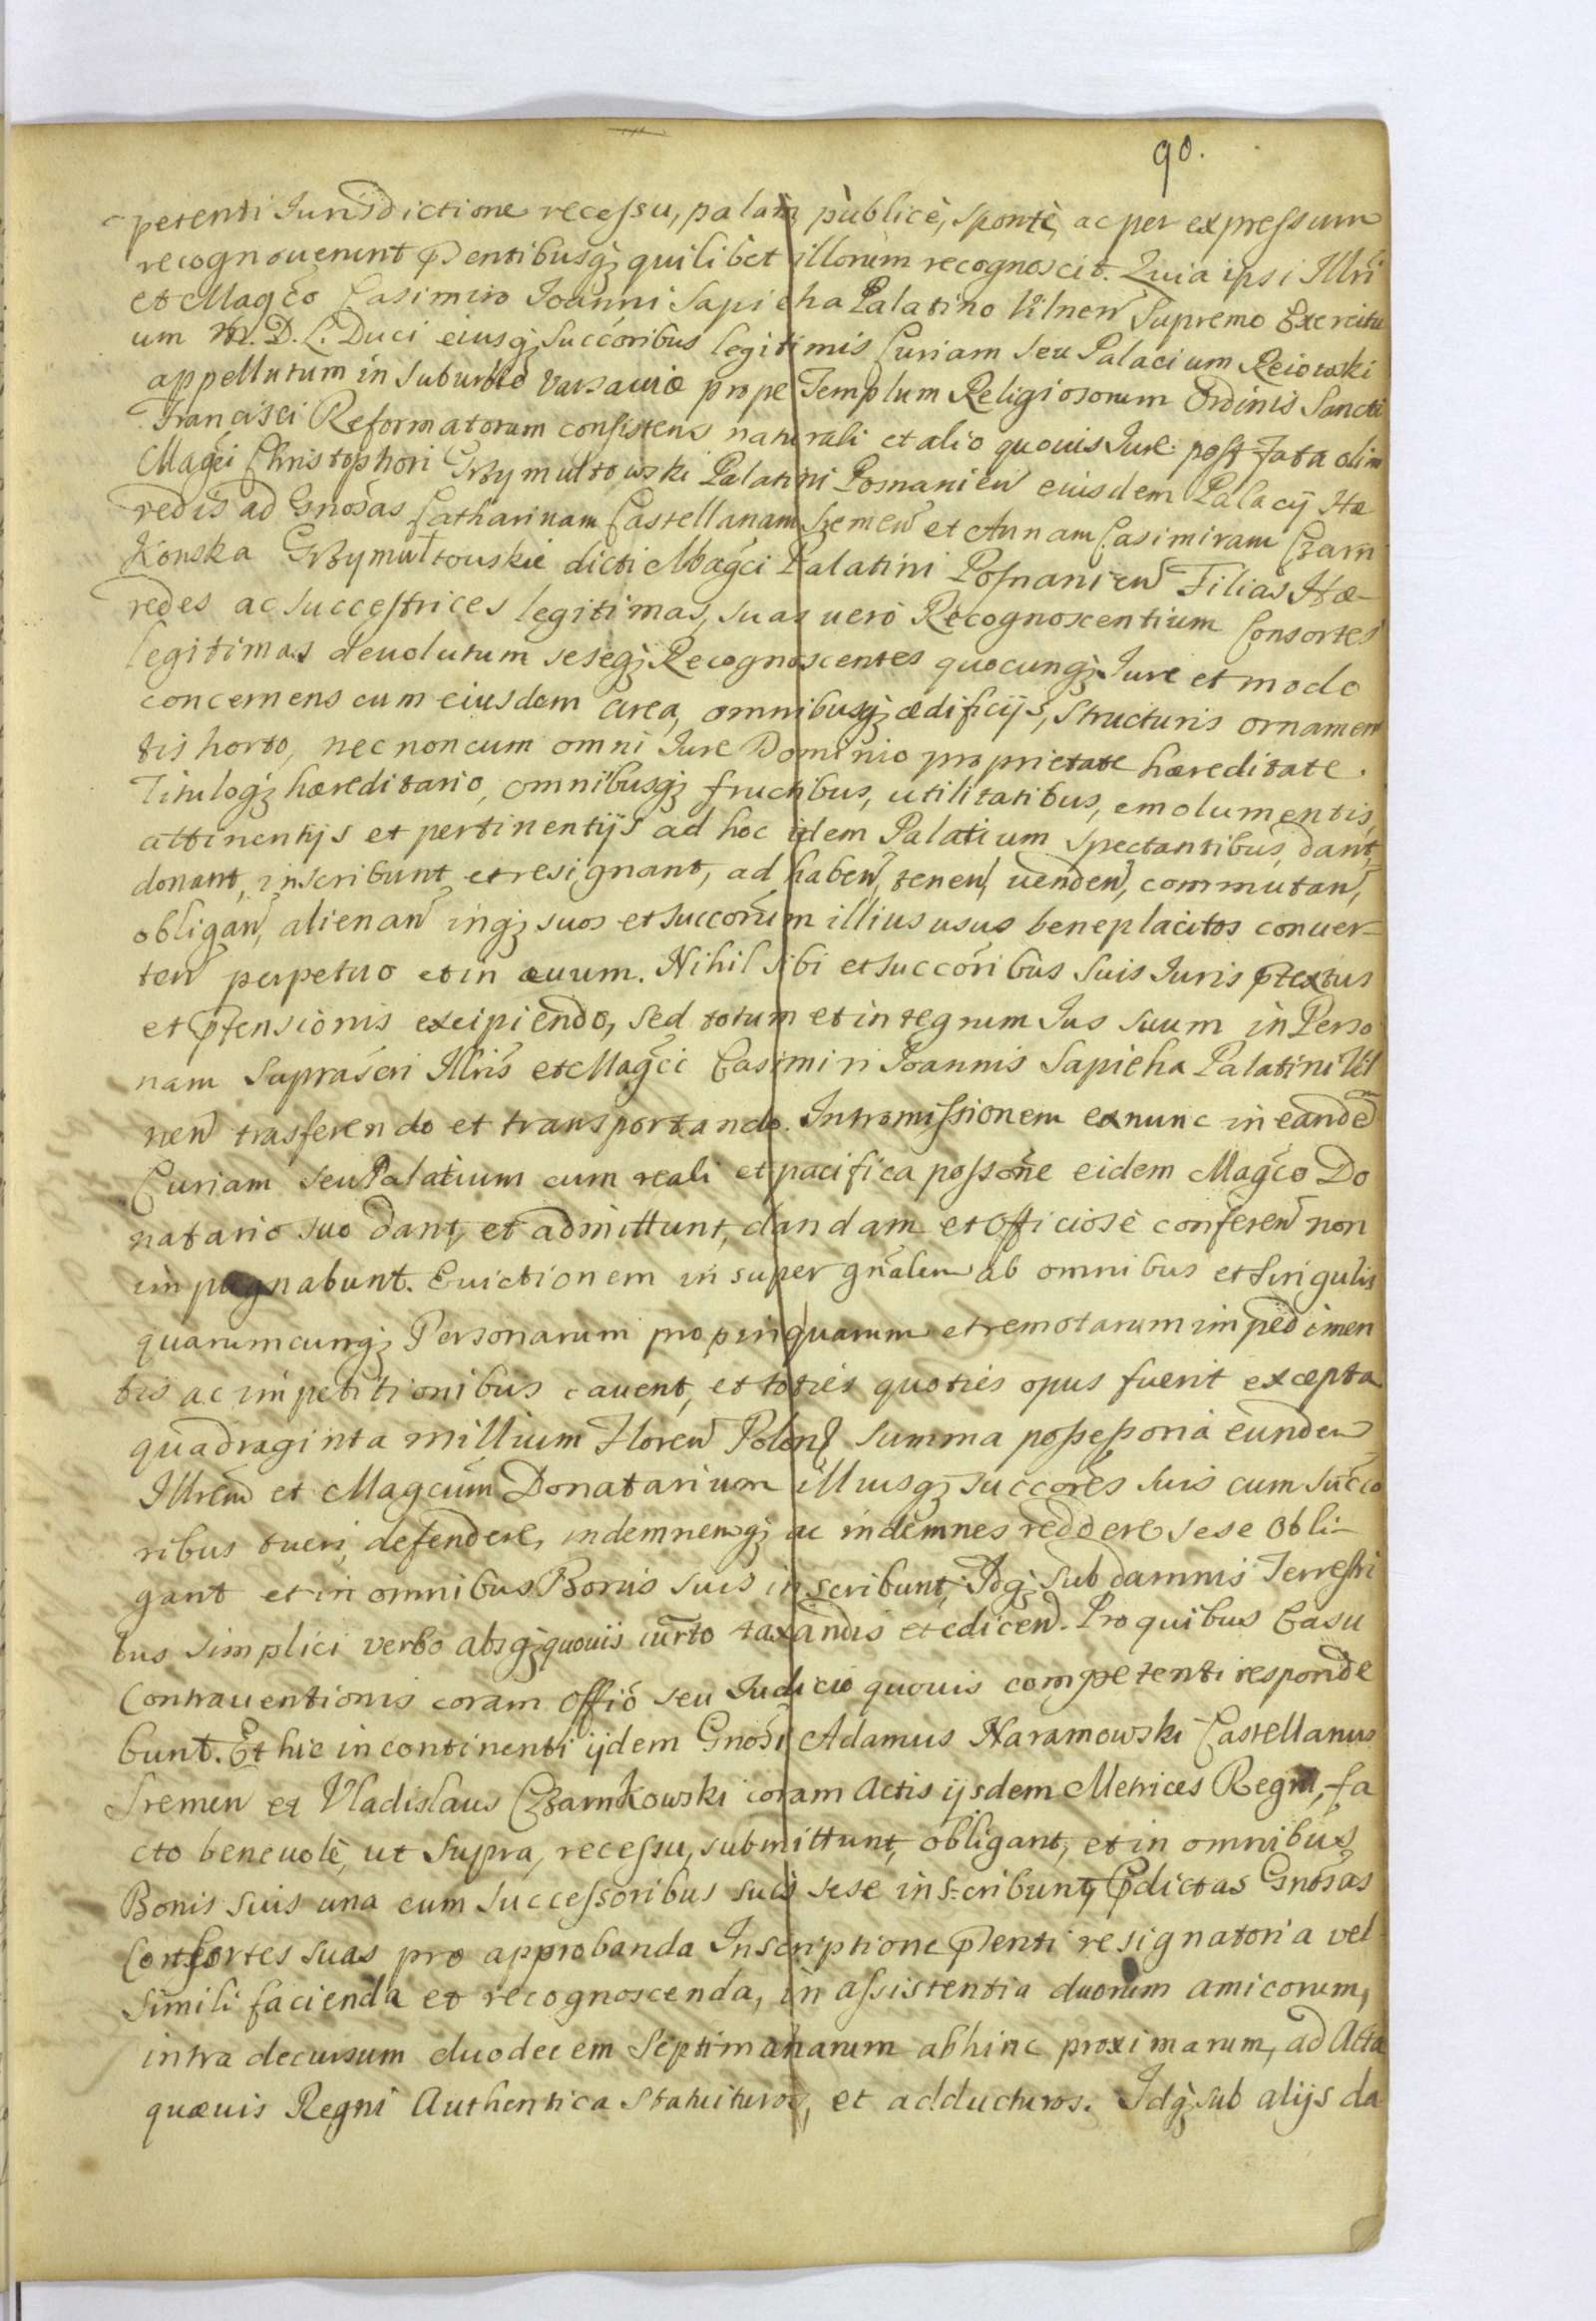 90.
petenti Jurisdictione recessu, palam publicè, spontè, ac per expressum
recognouerunt p͞ntibusq; quilibet illorum recognoscit. Quia ipsi Illri
et Magco Casimiro Joanni Sapieha Palatino Vilnen Supremo Exercitu
um M. D. L. Duci eiusq; Succoribus legitimis Curiam seu Palacium Reiowski
appellatum in Suburbio Varsauiæ prope Templum Religiosorum Ordinis Sancti
Francisci Reformatorum consistens naturali et alio quouis Jure post fata olim
Magci Christophori Grzymultowski Palatini Posnanien eiusdem Palacij Hæ
redis ad Gnosas Catharinam Castellanam Szremen et Annam Casimiram Czarn
Konska Grzymultouskie dicti Magci Palatini Posnanien Filias Hæ-
redes ac succestrices legitimas, suas uero Recognoscentium Consortes
legitimas deuolutum seseq; Recognoscentes quocunq; Jure et modo
concernens cum eiusdem area, omnibusq; ædificijs, structuris ornamen
tis horto, nec non cum omni Jure Dominio proprietate hæreditate.
Tituloq; hæreditario, omnibusq; fructibus, utilitatibus, emolumentis,
attinentijs et pertinentijs ad hoc idem Palatium spectantibus, dant,
donant, inscribunt et resignant, ad haben, tenen, uenden, commutan,
obligan, alienan inq; suos et succorum illius usus beneplacitos conuer-
ten perpetuo et in æuum. Nihil sibi et succoribus suis Juris p̄textus
et p̄tensionis excipiendo, sed totum et integrum Jus suum in Perso
nam Suprascri Illris et Magci Casimiri Joannis Sapieha Palatini Vil
nen trasferendo et transportando. Intromissionem exnunc in eande
Curiam seu Palatium cum reali et pacifica possone eidem Magco Do
natario suo dant, et admittunt, dandam et Officiose conferen non
impugnabunt. Euictionem insuper gnalem ab omnibus et singulis
quarumcunq; Personarum propinquarum et remotarum impedimen
tis ac impetitionibus cauent, et toties quoties opus fuerit excepta
quadraginta millium Floren Polon summa possessoria eundem
Illrem et Magcum Donatarium illiusq; succores suis cum succo
ribus tueri, defendere, indemnemq; ac indemnes reddere sese obli-
gant et in omnibus Bonis suis inscribunt, Idq; sub damnis Terrestri
bus simplici verbo absq; quouis iurto taxandis et edicen. Pro quibus Casu
Contrauentionis coram Offió seu Judicio quouis competenti responde
bunt. Et hic in continenti ijdem Gnosi Adamus Naramowski Castellanus
Sremen et Vladislaus Czarnkowski coram Actis ijsdem Metrices Regni, fa
cto beneuolè, ut supra, recessu, submittunt, obligant, et in omnibus
Bonis suis una cum successoribus suis sese inscribunt, p̄dictas Gnosas
Consortes suas pro approbanda Inscriptione p͞nti resignatoria vel
simili facienda et recognoscenda, in assistentia duorum amicorum,
intra decursum duodecem Septimanarum abhinc proximarum, ad Acta
quæuis Regni Authentica Statuituros, et adducturos. Idq; sub alijs da